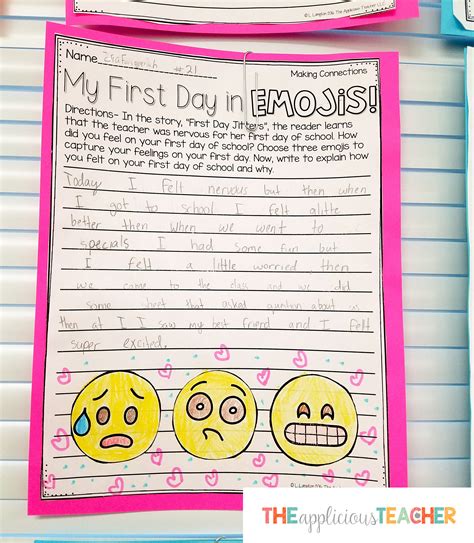 © L. Lampton Me, The Applicious Teacher LLC
Name #21
Making Connections
My First Day in EMOJIS!
Directions- In the story, "First Day Jitters", the reader learns
that the teacher was nervous for her first day of school. How
did you feel on your first day of school? Choose three emojis to
capture your feelings on your first day. Now, write to explain how
you felt on your first day of school and why.
Today I felt nervous but then when
I got to school I felt alitle
better then when we went to
specials I had some fun but
I felt a little worried then
we came to the class and we did
some sheet that asked about us
then at I I saw my best friend and I felt
super excited.
THE appliciousTEACHER